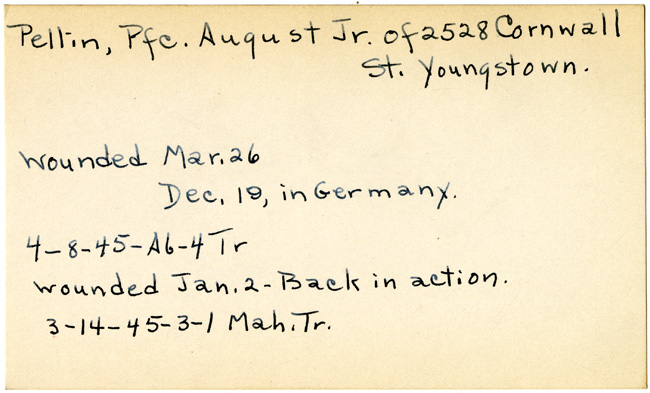 Pellin, Pfc. August Jr. of 2528 Cornwall
St. Youngstown.
wounded Mar. 26
Dec. 19, in Germany.
4-8-45-A6-4 Tr
wounded Jan. 2 - Back in action.
3-14-45-3-1 Mah. Tr.